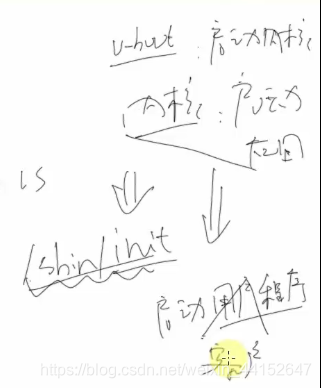 u-boot：启动内核
内核：启动
应用
ls
/sbin/init
启动用户程序
https://blog.csdn.net/weixin_44152647